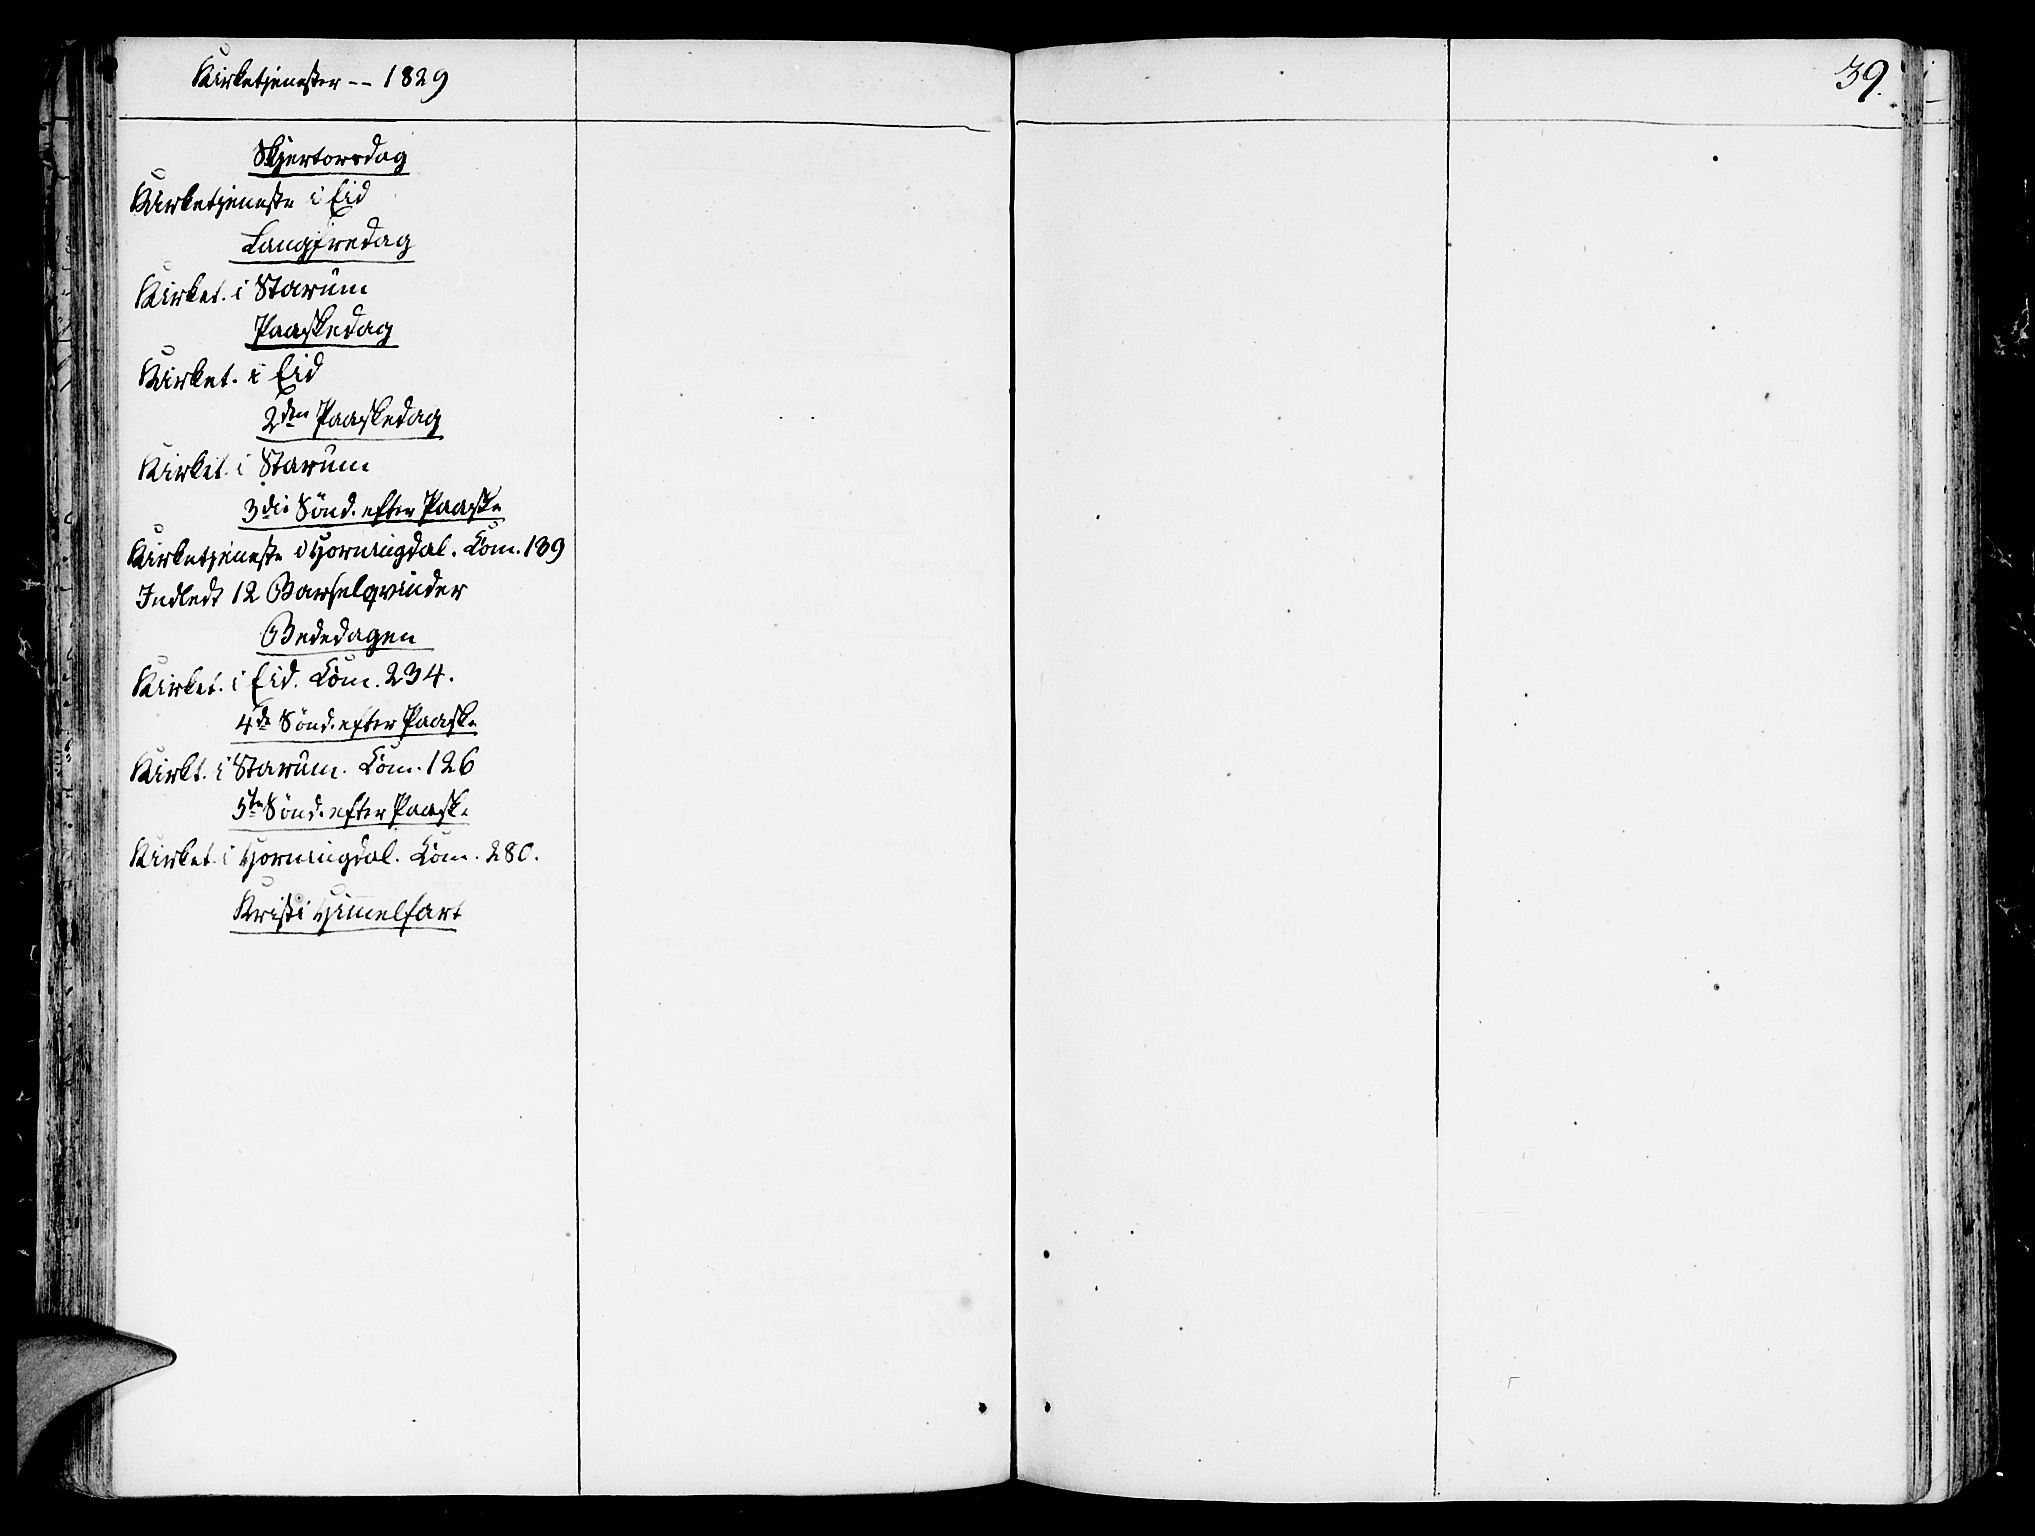 Kirketjenester -- 1829
39.
Skjertorsdag
Kirketjeneste i Eid
Langfredag
Kirket. i Starum
Paaskedag
Kirket. i Eid
2den Paaskedag
Kirket. i Starum
3die Sönd. efter Paaske
Kirketjeneste i Horningdal. Com. 139
Indledt 12 Barselqvinder
Bededagen
Kirket. i Eid. Com. 234.
4de Sönd. efter Paaske
Kirkt. i Starum. Com. 126
5te Sönd. efter Paaske
Kirket. i Horningdal. Com. 280.
Kristi Himmelfart